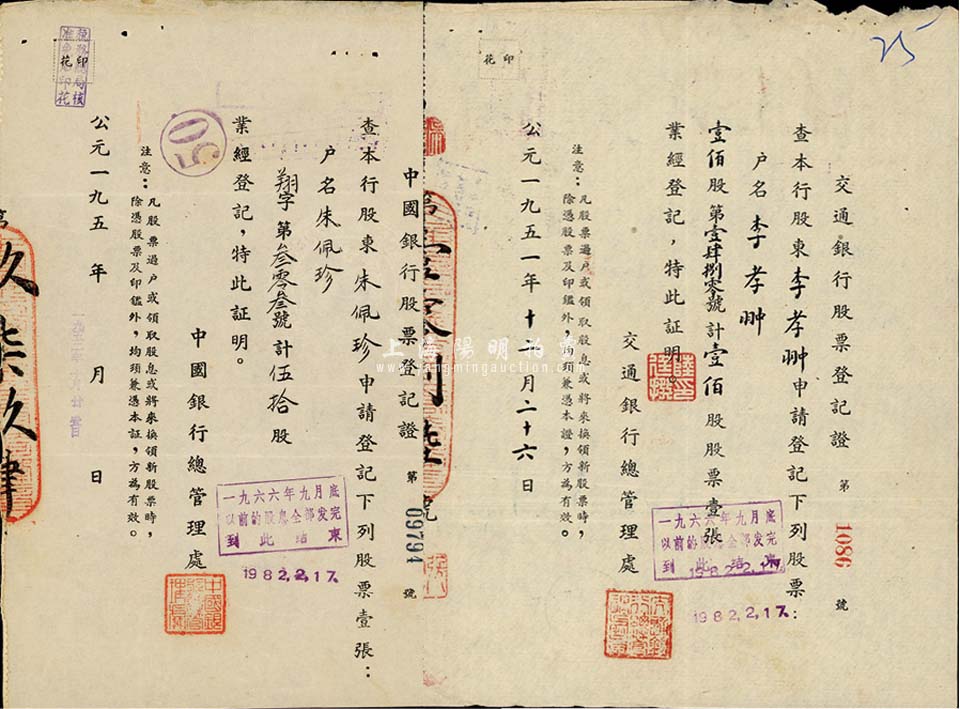 25
印花
交通銀行股票登記證 第 1086 號
查本行股東李孝翀申請登記下列股票
户名李孝翀
壹佰股 第壹肆捌零號計壹佰股股票壹張
業經登記，特此証明。
交通銀行總管理處
公元一九五一年十二月二十六日
注意：凡股票過户或領取股息或將來換領新股票時，
除憑股票及印鑑外，均須兼憑本證，方為有效。
一九六六年九月底
以前的股息全部发完
到此结束
1982.2.17.
1982.2.17.
中國銀行股票登記證 第 09794 號
查本行股東朱佩珍申請登記下列股票壹張：
户名朱佩珍
翔字第叁零叁號計伍拾股
業經登記，特此証明。
中國銀行總管理處
公元一九五 年 月 日
注意：凡股票過户或領取股息或將來換領新股票時，
除憑股票及印鑑外，均須兼憑本証，方為有效。
一九六六年九月底
以前的股息全部发完
到此结束
1982.2.17.
50
印花
第
玖柒玖肆
號
上海陽明拍賣
www.yangmingauction.com